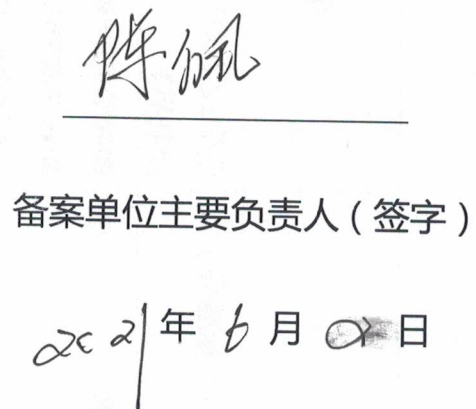 陈佩
备案单位主要负责人（签字）
2021年6月2日